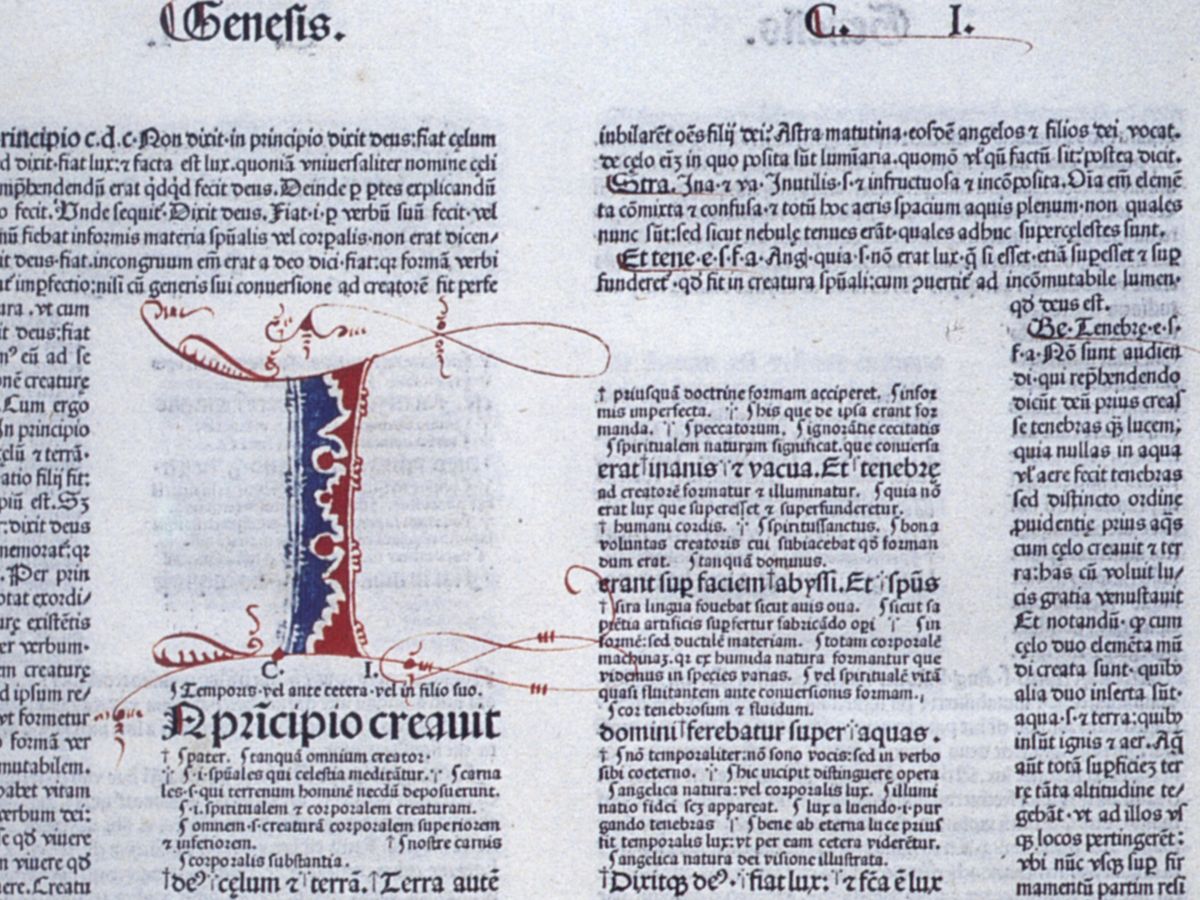 Genesis.
C. I.
rincipio c.d.c. Non dixit·in principio dixit deus:fiat cęlum
d dixit·fiat lux:⁊ facta est lux.quoniā vniuersaliter nomine cęli
erat qdqd fecit deus. Deinde p ptes explicandū
o fecit. Unde sequit. Dixit deus. Fiat·i·p verbū suū fecit·vel
fiebat informis materia spūalis vel corpalis·non erat dicen/
it deus·fiat.incongruum em̄ erat a deo dici·fiat:qr formā verbi
at impfectio:nisi cū generis sui conuersione ad creatorē fit perfe
ara . vt cum
it deus:fiat
eū ad se
onē creature
.Cum ergo
In principio
cęlū ⁊ terrā·
atio filij fit:
piū est. Sꝫ
r:dixit deus
memorat:qr
. Per prin
ptat exordi/
urę existētis
er verbum·
em creature
d ipsum re/
vt formetur
o formā ver
mutabilem.
abet vitam
verbum dei:
se qd viuere
n viuere qd
uere.Creatu
C. I.
ſ Temporis·vel ante cetera·vel in filio suo.
N prīcipio creauit
† ſpater. ſtanquā omnium creator·
ſ·i·spūales qui celestia meditātur.† ſcarna
les·s·qui terrenum hominē necdū deposuerunt.
ſ·i·spiritualem ⁊ corporalem creaturam.
ſ omnem·s·creaturā corporalem superiorem
⁊ inferiorem. † ſnostre carnis
ſcorporalis substantia.
†de⁹·†cęlum ⁊ †terrā.†Terra autē
iubilarēt oēs filij dei? Astra matutina·eosdē angelos ⁊ filios dei vocat.
de cęlo eīꝫ in quo posita sūt lumīaria.quomō vl qū factū sit:postea dicit.
Stra. Ina·⁊ va· Inutilis·s·⁊ infructuosa ⁊ incōposita. Oīa em̄ elemē
ta cōmixta ⁊ confusa·⁊ totū hoc aeris spacium aquis plenum·non quales
nunc sūt:sed sicut nebulę tenues erāt·quales adhuc supercęlestes sunt.
Et tene·e·s·f·a· Ang·quia·s·nō erat lux·q̄ si esset·etiā supesset ⁊ sup
funderet·qd fit in creatura spūali:cum puertit ad incōmutabile lumen·
qd deus est.
Be·Tenebrę·e·s·
f·a·Nō sunt audien
di·qui rephendendo
dicūt deū prius creas
se tenebras qꝫ lucem;
quia nullas in aqua
vl aere fecit tenebras
sed distincto ordine
puidentię prius aqs
cum cęlo creauit ⁊ ter
ra:has cū voluit lu/
cis gratia venustauit
Et notandū· cum
cęlo duo elemēta mū
di creata sunt·quib⁹
alia duo inserta sūt·
aqua·s·⁊ terra:quib⁹
insūt ignis ⁊ aer. Aq̄
aūt totā supficieꝫ ter
rę tāta altitudine te/
gebāt·vt ad illos vs
qꝫ locos pertingerēt·
vbi nūc vsqꝫ sup fir
mamentū partim resi
† priusquā doctrine formam acciperet. ſinfor
mis imperfecta. † ſhis que de ipsa erant for
manda. † ſpeccatorum. ſignorātie cecitatis
ſspiritualem naturam significat.que conuersa
erat†inanis†⁊ vacua.Et†tenebrę
ad creatorē formatur ⁊ illuminatur. ſquia nō
erat lux que superesset ⁊ superfunderetur.
† humani cordis. † ſspiritussanctus. ſbona
voluntas creatoris cui subiacebat qd forman
dum erat. ſtanquā dominus.
erant sup faciem†abyssi. Et†spūs
† sira lingua fouebat sicut auis oua. ſsicut sa
piētia artificis supfertur fabricādo opi † ſin
formē:sed ductilē materiam. ſtotam corporalē
machinaꝫ.qr ex humida natura formantur que
videmus in species varias. ſvel spiritualē vitā
quasi fluitantem ante conuersionis formam.
ſcor tenebrosum ⁊ fluidum.
domini†ferebatur super†aquas.
ſnō temporaliter:nō sono vocis:sed in verbo
sibi coeterno. † ſhic incipit distinguere opera
ſangelica natura:vel corporalis lux. ſillumi
natio fidei scꝫ appareat. ſlux a luendo·i·pur
gando tenebras † ſbene ab eterna luce prius
fit temporalis lux:vt per eam cetera viderētur.
ſangelica natura dei visione illustrata.
†Dixitqꝫ de⁹·†fiat lux: †⁊ fca ē lux